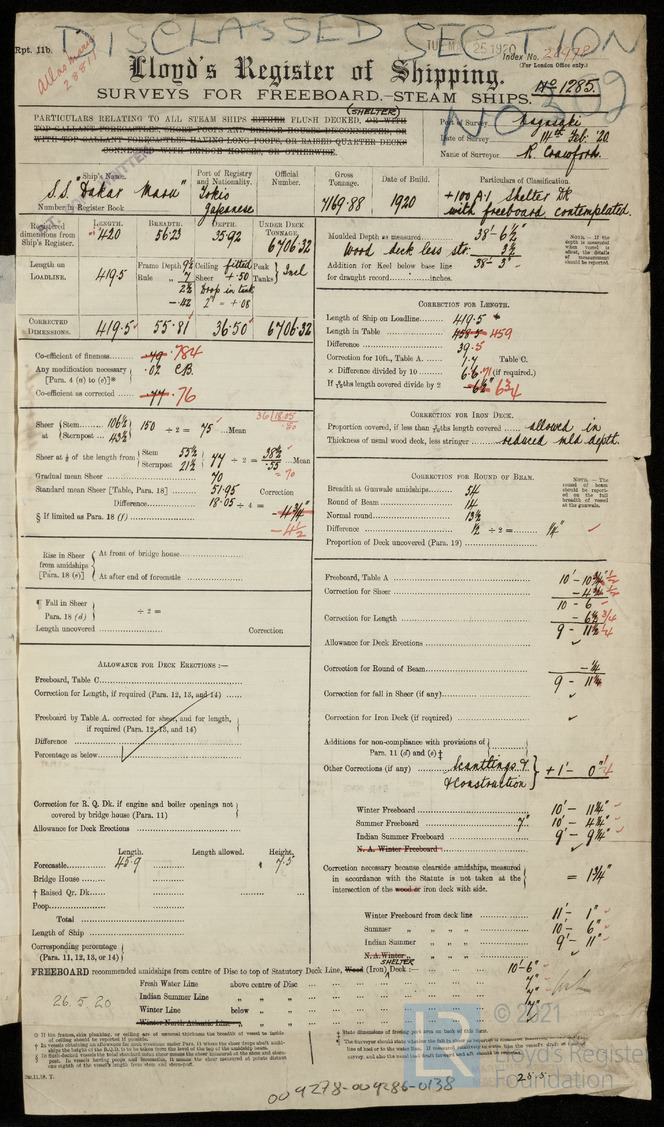 DISCLASSED SECTION
Rpt. 11b.
TUE. MAY 25 1920
Index No. 28978
(For London Office only.)
Lloyd's Register of Shipping.
No 1285.
SURVEYS FOR FREEBOARD.—STEAM SHIPS.
(SHELTER)
PARTICULARS RELATING TO ALL STEAM SHIPS EITHER FLUSH DECKED, OR WITH
TOP-GALLANT FORECASTLES, SHORT POOPS AND BRIDGE HOUSES DISCONNECTED, OR
WITH TOP-GALLANT FORECASTLES HAVING LONG POOPS, OR RAISED QUARTER DECKS
CONNECTED WITH BRIDGE HOUSES, OR OTHERWISE.
Port of Survey Nagasaki
Date of Survey 14th Feb. '20
Name of Surveyor R. Crawford
Ship's Name.
Port of Registry and Nationality.
Official Number.
Gross Tonnage.
Date of Build.
Particulars of Classification.
S.S. "Dakar Maru"
Tokio
Japanese
7169.88
1920
+100 A.1 Shelter Dk
with freeboard contemplated.
Number in Register Book
Registered dimensions from Ship's Register.
LENGTH. BREADTH. DEPTH. UNDER DECK TONNAGE.
420 56.23 35.92 6706.32
Length on LOADLINE.
419.5
Frame Depth 9½ Ceiling fitted Peak Tanks } Incl
Rule 7 Sheer +.50
2½ Drop in tank
-.42 2" = +.08
CORRECTED DIMENSIONS. 419.5 55.81 36.50 6706.32
Co-efficient of fineness .79 .784
Any modification necessary [Para. 4 (a) to (e)]* .02 C.B.
Co-efficient as corrected .77 .76
Sheer at { Stem 106½ Sternpost 43½ } 150 ÷ 2 = 75 Mean
36|18.05
.50
Sheer at ⅛ of the length from { Stem 55½ Sternpost 21½ } 77 ÷ 2 = 38½ Mean
.55
Gradual mean Sheer 70 = 70
Standard mean Sheer [Table, Para. 18] 51.95 Correction
Difference 18.05 ÷ 4 =
§ If limited as Para. 18 (f) -4¾
-4½
Rise in Sheer from amidships [Para. 18 (e)] { At front of bridge house
At after end of forecastle
¶ Fall in Sheer Para. 18 (d) } ÷ 2 =
Length uncovered Correction
ALLOWANCE FOR DECK ERECTIONS:—
Freeboard, Table C.
Correction for Length, if required (Para. 12, 13, and 14)
Freeboard by Table A. corrected for sheer, and for length, if required (Para. 12, 13, and 14)
Difference
Percentage as below
Correction for R. Q. Dk. if engine and boiler openings not covered by bridge house (Para. 11)
Allowance for Deck Erections
Length. Length allowed. Height.
Forecastle 45.9 7.5
Bridge House
† Raised Qr. Dk.
Poop
Total
Length of Ship
Corresponding percentage (Para. 11, 12, 13, or 14)
Moulded Depth as measured 38'-6½"
Wood deck less str. 3½
38'-3"
Addition for Keel below base line for draught record inches.
NOTE.—If the depth is measured when vessel is afloat, the details of measurement should be reported.
CORRECTION FOR LENGTH.
Length of Ship on Loadline 419.5
Length in Table 458.5 459
Difference 39.5
Correction for 10ft., Table A. 1.7 Table C.
× Difference divided by 10 6.6 .71 (if required.)
If 6/10ths length covered divide by 2 -6½" 6¾
CORRECTION FOR IRON DECK.
Proportion covered, if less than 7/10ths length covered allowed in
Thickness of usual wood deck, less stringer reduced mld depth.
CORRECTION FOR ROUND OF BEAM.
Breadth at Gunwale amidships 54
Round of Beam 14
Normal round 13½
Difference ½ ÷ 2 = ¼"
Proportion of Deck uncovered (Para. 19)
NOTE.—The round of beam should be reported on the full breadth of vessel at the gunwale.
Freeboard, Table A 10'-10¾" ½
Correction for Sheer -4¾ ½
10-6
Correction for Length -6½ ¾
9-11½ ¼
Allowance for Deck Erections
Correction for Round of Beam -¼
9-11¼
Correction for fall in Sheer (if any)
Correction for Iron Deck (if required)
Additions for non-compliance with provisions of Para. 11 (d) and (e) ‡
Other Corrections (if any) Scantlings &
& Construction } +1'-0"
Winter Freeboard 11'-11¼"
Summer Freeboard 7" 10'-4¼"
Indian Summer Freeboard 9'-9¼"
N. A. Winter Freeboard
Correction necessary because clearside amidships, measured in accordance with the Statute is not taken at the intersection of the wood or iron deck with side. = 1¾"
Winter Freeboard from deck line 11'-1"
Summer „ „ „ 10'-6"
Indian Summer „ „ „ 9'-11"
N. A. Winter „ „
SHELTER
FREEBOARD recommended amidships from centre of Disc to top of Statutory Deck Line, Wood (Iron) Deck:— 10'-6"
Fresh Water Line above centre of Disc 7"
Indian Summer Line „ „ 7"
Winter Line below „ 7"
Winter North Atlantic Line „ „
26.5.20
25.5.
© 2021
Lloyd's Register
Foundation
009278-009286-0138